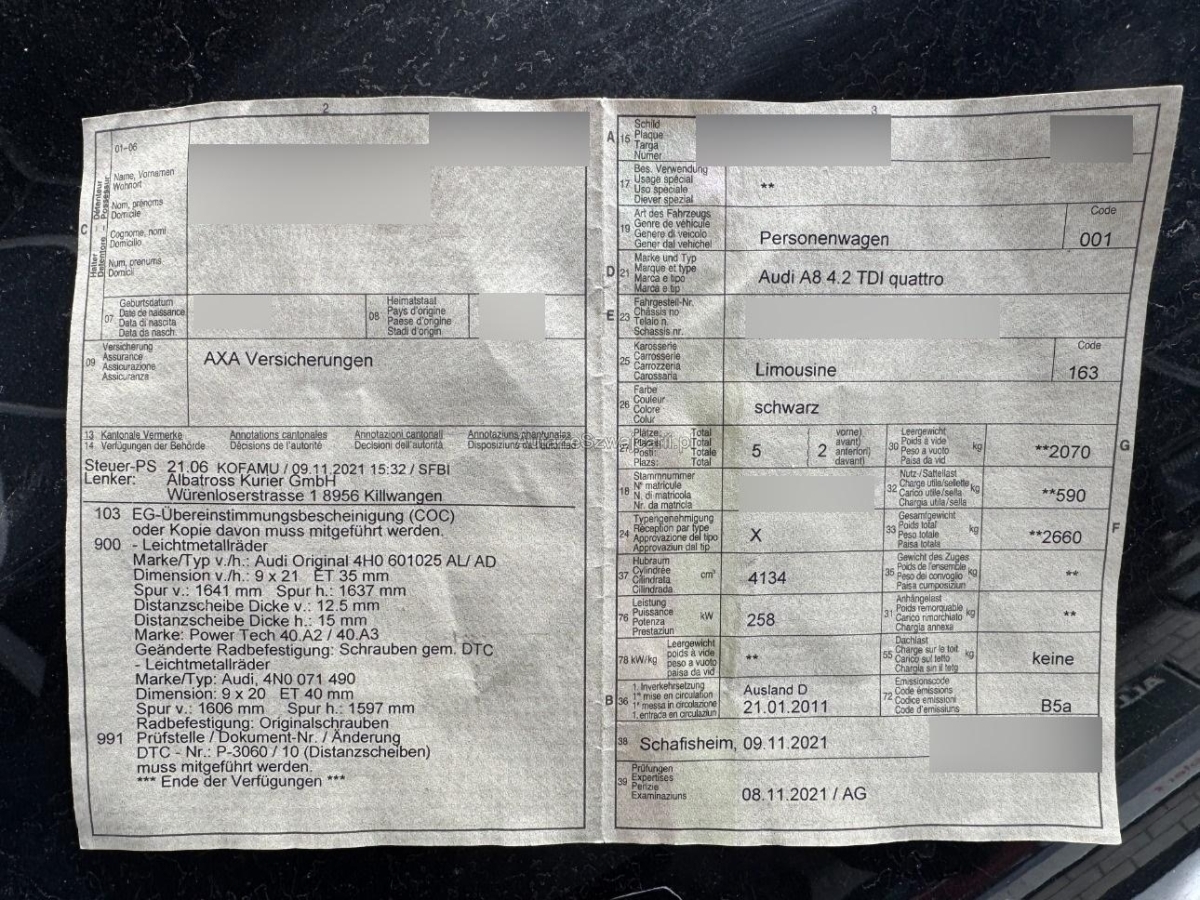 2
01-06
Name, Vornamen
Wohnort
Nom, prénoms
Domicile
Cognome, nomi
Domicilio
Num, prenums
Domicil
C
Halter Détenteur
Detentore Possessur
07 Geburtsdatum
Date de naissance
Data di nascita
Data da nasch.
08 Heimatstaat
Pays d'origine
Paese d'origine
Stadi d'origin
09 Versicherung
Assurance
Assicurazione
Assicuranza
AXA Versicherungen
13 Kantonale Vermerke Annotations cantonales Annotazioni cantonali Annotaziuns chantunalas
14 Verfügungen der Behörde Décisions de l'autorité Decisioni dell'autorità Disposiziuns da l'autoritad
Steuer-PS 21.06 KOFAMU / 09.11.2021 15:32 / SFBI
Lenker: Albatross Kurier GmbH
Würenloserstrasse 1 8956 Killwangen
103 EG-Übereinstimmungsbescheinigung (COC)
oder Kopie davon muss mitgeführt werden.
900 - Leichtmetallräder
Marke/Typ v./h.: Audi Original 4H0 601025 AL/ AD
Dimension v./h.: 9 x 21 ET 35 mm
Spur v.: 1641 mm Spur h.: 1637 mm
Distanzscheibe Dicke v.: 12.5 mm
Distanzscheibe Dicke h.: 15 mm
Marke: Power Tech 40.A2 / 40.A3
Geänderte Radbefestigung: Schrauben gem. DTC
- Leichtmetallräder
Marke/Typ: Audi, 4N0 071 490
Dimension: 9 x 20 ET 40 mm
Spur v.: 1606 mm Spur h.: 1597 mm
Radbefestigung: Originalschrauben
991 Prüfstelle / Dokument-Nr. / Änderung
DTC - Nr.: P-3060 / 10 (Distanzscheiben)
muss mitgeführt werden.
*** Ende der Verfügungen ***
3
A 15 Schild
Plaque
Targa
Numer
17 Bes. Verwendung
Usage spécial
Uso speciale
Diever spezial
**
19 Art des Fahrzeugs
Genre de véhicule
Genere di veicolo
Gener dal vehichel
Personenwagen
Code
001
D 21 Marke und Typ
Marque et type
Marca e tipo
Marca e tip
Audi A8 4.2 TDI quattro
E 23 Fahrgestell-Nr.
Châssis no
Telaio n.
Schassis nr.
25 Karosserie
Carrosserie
Carrozzeria
Carossaria
Limousine
Code
163
26 Farbe
Couleur
Colore
Colur
schwarz
27 Plätze: Total
Places: Total
Posti: Totale
Plazs: Total
5
2
vorne)
avant)
anteriori)
davant)
30 Leergewicht
Poids à vide
Peso a vuoto
Paisa da vid
kg
**2070
G
18 Stammnummer
N° matricule
N. di matricola
Nr. da matricla
32 Nutz-/Sattellast
Charge utile/sellette
Carico utile/sella
Chargia utila/sella
kg
**590
24 Typengenehmigung
Réception par type
Approvazione del tipo
Approvaziun dal tip
X
33 Gesamtgewicht
Poids total
Peso totale
Paisa totala
kg
**2660
F
37 Hubraum
Cylindrée
Cilindrata
Cilindrada
cm³
4134
35 Gewicht des Zuges
Poids de l'ensemble
Peso del convoglio
Paisa cumposiziun
kg
**
76 Leistung
Puissance
Potenza
Prestaziun
kW
258
31 Anhängelast
Poids remorquable
Carico rimorchiato
Chargia annexa
kg
**
78 kW/kg
Leergewicht
poids à vide
peso a vuoto
paisa da vid
**
55 Dachlast
Charge sur le toit
Carico sul tetto
Chargia sin il tetg
kg
keine
B 36 1. Inverkehrsetzung
1re mise en circulation
1a messa in circolazione
1. entrada en circulaziun
Ausland D
21.01.2011
72 Emissionscode
Code émissions
Codice emissioni
Code d'emissiuns
B5a
38 Schafisheim, 09.11.2021
39 Prüfungen
Expertises
Perizie
Examinaziuns
08.11.2021 / AG